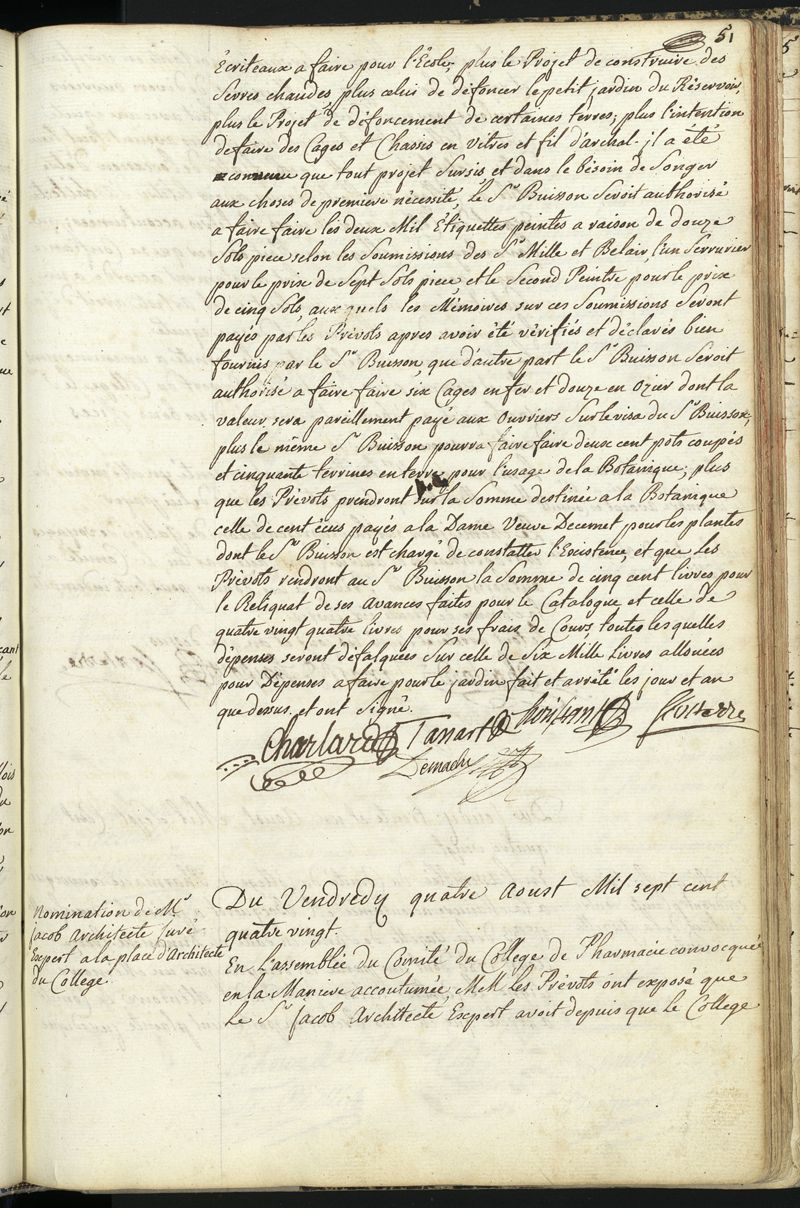 51
Ecriteaux a faire pour l'Ecole, plus le Projet de construire des
Serres chaudes, plus celui de défoncer le petit jardin du Réservoir,
plus le Projet de défoncement de certaines terres, plus l'intention
de faire des Cages et Chasses en Vitres et fil d'archal. jl a été
convenu que tout projet Sursis et dans le bésoin de Songer
aux choses de premiere nécéssité, Le Sr Buisson Seroit authorisé
a faire faire les deux Mil Etiquettes peintes a raison de douze
Sols piece selon les Soumissions des Srs Mille et Belair, l'un Serrurier
pour le prix de Sept Sols piece, et le Second Peintre pour le prix
de cinq Sols, aux quels les Mémoires sur ces Soumissions Seront
payés par les Prévots apres avoir été vérifiés et déclarés bien
fournis par le Sr Buisson, que d'autre part le Sr Buisson Seroit
authorisé a faire faire six Cages en fer et douze en Ozier dont la
valeur sera pareillement payé aux Ouvriers Sur le visa du Sr Buisson,
plus le même Sr Buisson pourra faire faire deux cent pots coupés
et cinquante terrines en terre pour l'usage de la Botanique; plus
que les Prévots prendront sur la Somme destinée a la Botanique
celle de cent écus payés a la Dame Veuve Decemet pour les plantes
dont le Sr Buisson est chargé de constatter l'Existence, et que Les
Prévots rendront au Sr Buisson la Somme de cinq cent livres pour
le Reliquat de ses avances faites pour le Catalogue et celle de
quatre vingt quatre livres pour ses frais de Cours, toutes lesquelles
dépenses seront défalquées Sur celle de Six Mille Livres allouées
pour Dépenses a faire pour le jardin fait et arrêté les jour et an
que dessus, et ont Signé.
Charlard Tassart
Demachy
Du Vendredy quatre aoust Mil sept cent
quatre vingt.
Nomination de Mr
jacob Architecte Juré
Expert a la place d'Architecte
du College
En L'assemblée du Comité du College de Pharmacie convocquée
en la Maniere accoutumée, MM. les Prévots ont exposé que
Le Sr jacob Architecte Expert avoit depuis que le College